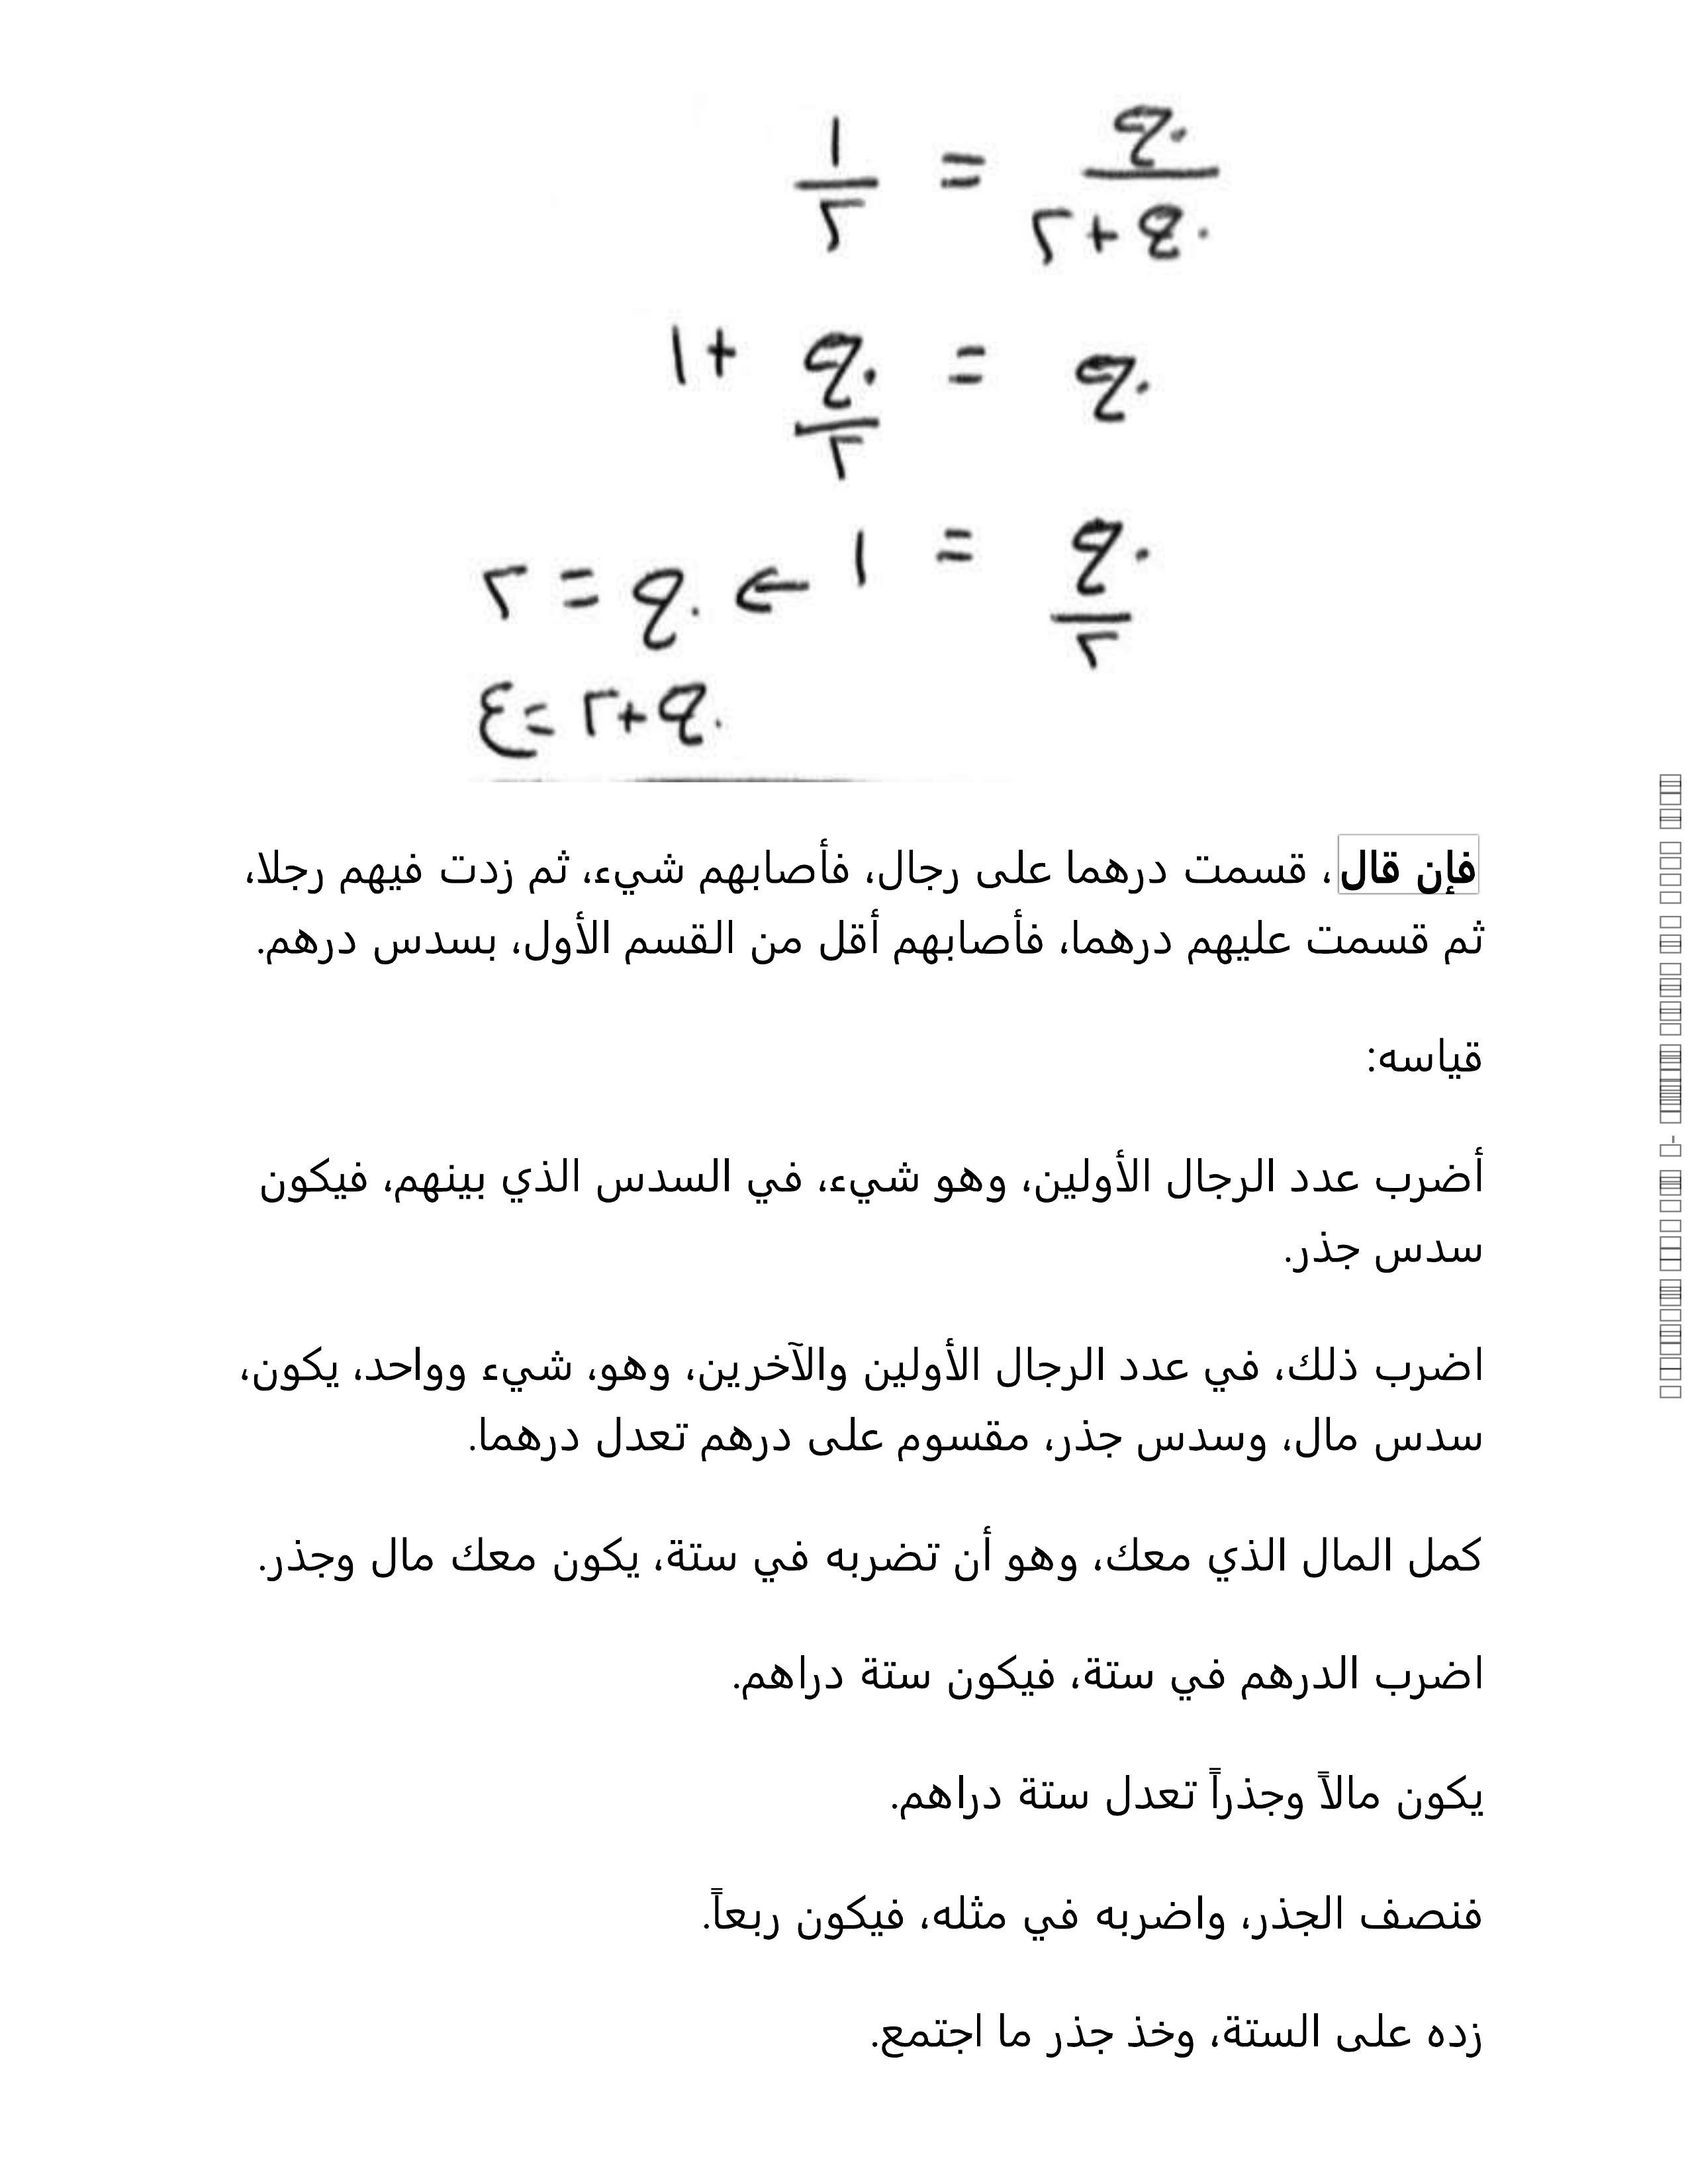 ١ =
٢ ٢+
١+ =
٢
٢ = ← ١ =
٢
٤ = ٢+
فإن قال، قسمت درهما على رجال، فأصابهم شيء، ثم زدت فيهم رجلا،
ثم قسمت عليهم درهما، فأصابهم أقل من القسم الأول، بسدس درهم.
قياسه:
أضرب عدد الرجال الأولين، وهو شيء، في السدس الذي بينهم، فيكون
سدس جذر.
اضرب ذلك، في عدد الرجال الأولين والآخرين، وهو، شيء وواحد، يكون،
سدس مال، وسدس جذر، مقسوم على درهم تعدل درهما.
كمل المال الذي معك، وهو أن تضربه في ستة، يكون معك مال وجذر.
اضرب الدرهم في ستة، فيكون ستة دراهم.
يكون مالاً وجذراً تعدل ستة دراهم.
فنصف الجذر، واضربه في مثله، فيكون ربعاً.
زده على الستة، وخذ جذر ما اجتمع.